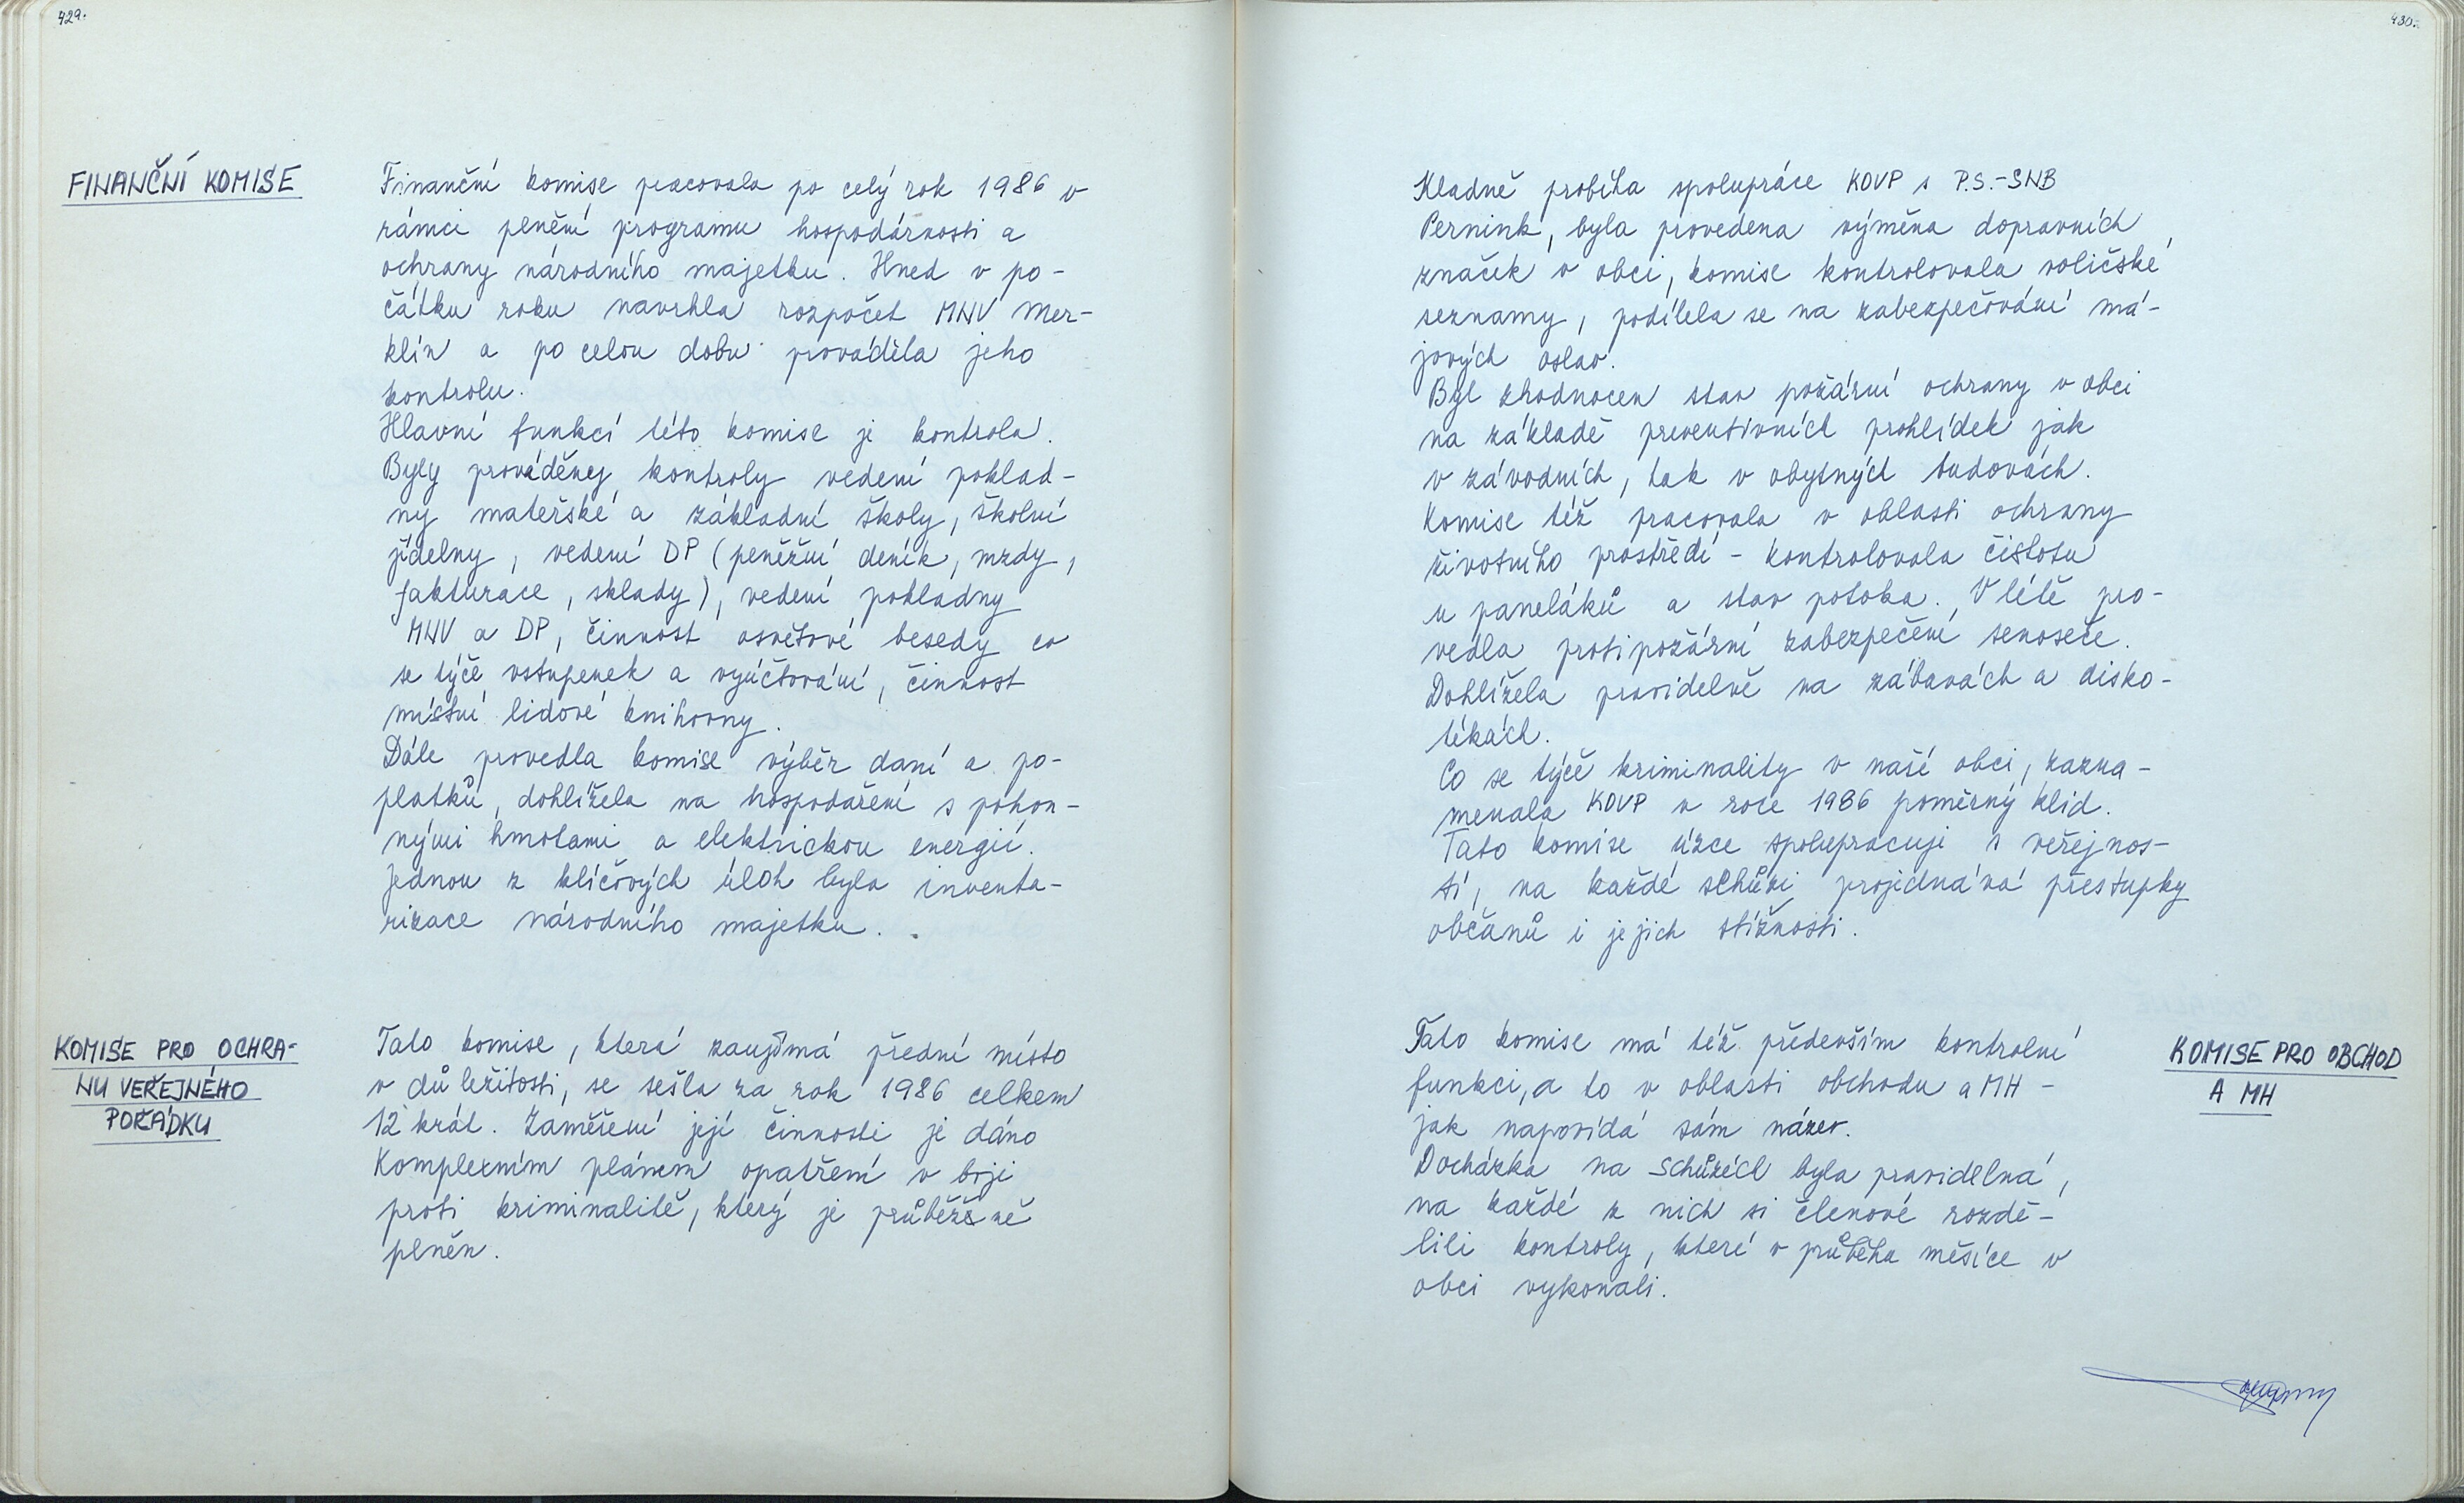 429.
FINANČNÍ KOMISE
Finanční komise pracovala po celý rok 1986 v
rámci plnění programu hospodárnosti a
ochrany národního majetku. Hned v po-
čátku roku navrhla rozpočet MNV Mer-
klín a po celou dobu prováděla jeho
kontrolu.
Hlavní funkcí této komise je kontrola.
Byly prováděny kontroly vedení poklad-
ny mateřské a základní školy, školní
jídelny, vedení DP (peněžní deník, mzdy,
fakturace, sklady), vedení pokladny
MNV a DP, činnost osvětové besedy co
se týče vstupenek a vyúčtování, činnost
místní lidové knihovny.
Dále provedla komise výběr daní a po-
platků, dohlížela na hospodaření s pohon-
nými hmotami a elektrickou energií.
Jednou z klíčových úloh byla inventa-
rizace národního majetku.
KOMISE PRO OCHRA-
NU VEŘEJNÉHO
POŘÁDKU
Tato komise, která zaujímá přední místo
v důležitosti, se sešla za rok 1986 celkem
12 krát. Zaměření její činnosti je dáno
Komplexním plánem opatření v boji
proti kriminalitě, který je průběžně
plněn.
430.
Kladně probíhá spolupráce KOVP s P.S.-SNB
Pernink, byla provedena výměna dopravních
značek v obci, komise kontrolovala voličské
seznamy, podílela se na zabezpečování má-
jových oslav.
Byl zhodnocen stav požární ochrany v obci
na základě preventivních prohlídek jak
v závodních, tak v obytných budovách.
Komise též pracovala v oblasti ochrany
životního prostředí - kontrolovala čistotu
u paneláků a stav potoka. V létě pro-
vedla protipožární zabezpečení senoseče.
Dohlížela pravidelně na zábavách a disko-
tékách.
Co se týče kriminality v naší obci, zazna-
menala KOVP v roce 1986 poměrný klid.
Tato komise úzce spolupracuje s veřejnos-
tí, na každé schůzi projednává přestupky
občanů i jejich stížnosti.
Tato komise má též především kontrolní
funkci, a to v oblasti obchodu a MH -
jak napovídá sám název.
Docházka na schůzích byla pravidelná,
na každé z nich si členové rozdě-
lili kontroly, které v průběhu měsíce v
obci vykonali.
KOMISE PRO OBCHOD
A MH